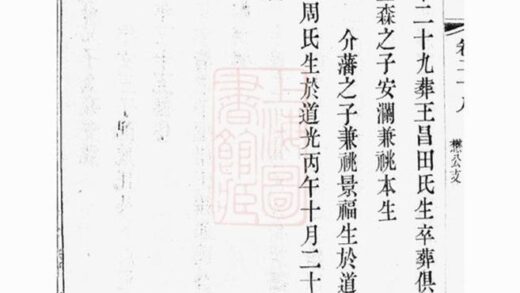 懋公支
二十九葬王昌田氏生卒葬俱
森之子安瀾兼祧本生
介藩之子兼祧景福生於道
周氏生於道光丙午十月二十
上海圖
書館藏